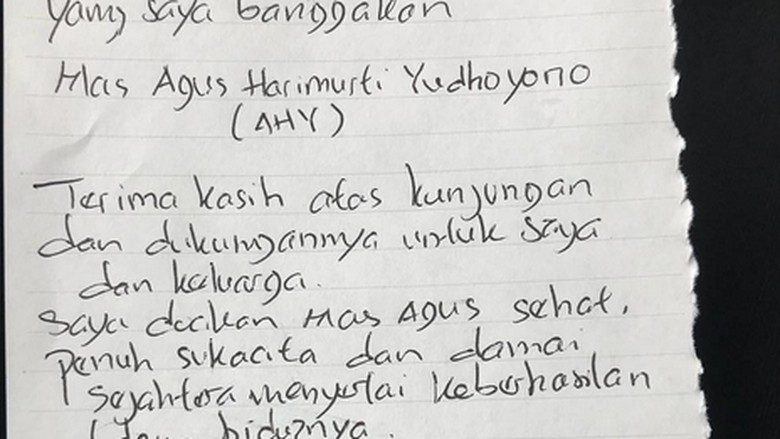 yang saya banggakan
Mas Agus Harimurti Yudhoyono
(AHY)
Terima kasih atas kunjungan
dan dukungannya untuk saya
dan keluarga.
Saya doakan Mas Agus sehat,
penuh sukacita dan damai
sejahtera menyertai keberhasilan
hidupnya.